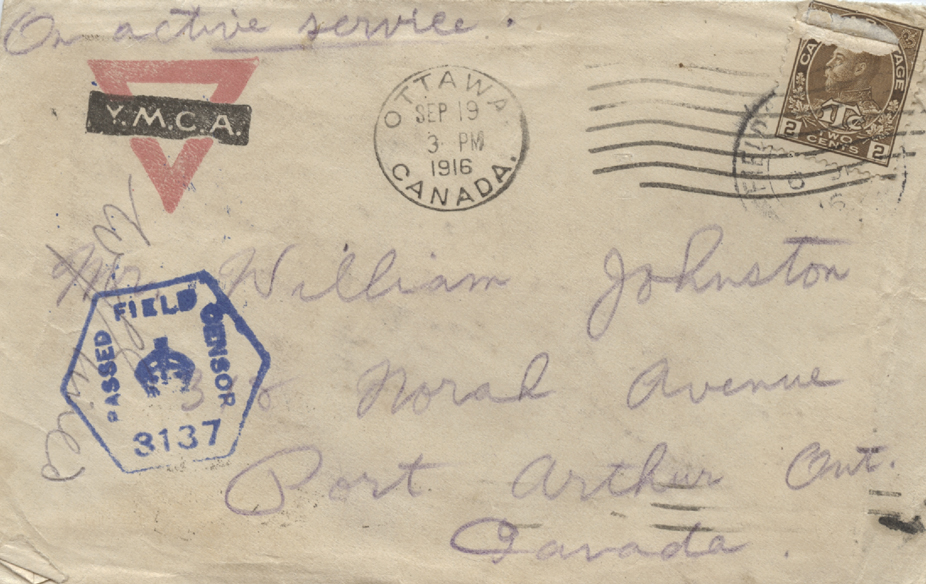 On active service.
Y.M.C.A.
OTTAWA
SEP 19
3 PM
1916
CANADA.
CA AGE
1Tc
2 TWO CENTS 2
Mr. William Johnston
Norah Avenue
Port Arthur Ont.
Canada.
PASSED FIELD CENSOR
3137